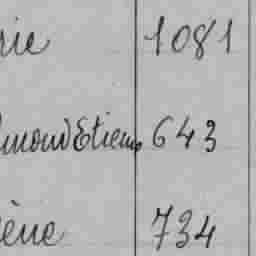 rie 1081
mond Etienne 643
ène 734